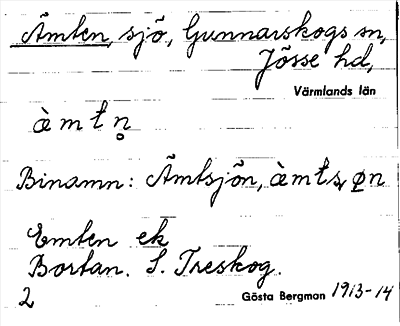 Ämten, sjö, Gunnarskogs sn,
Jösse hd,
Värmlands län
àmtn̥
Binamn: Ämtsjön, àmts, øn
Emten ek
Bortan. S. Treskog.
2
Gösta Bergman 1913-14